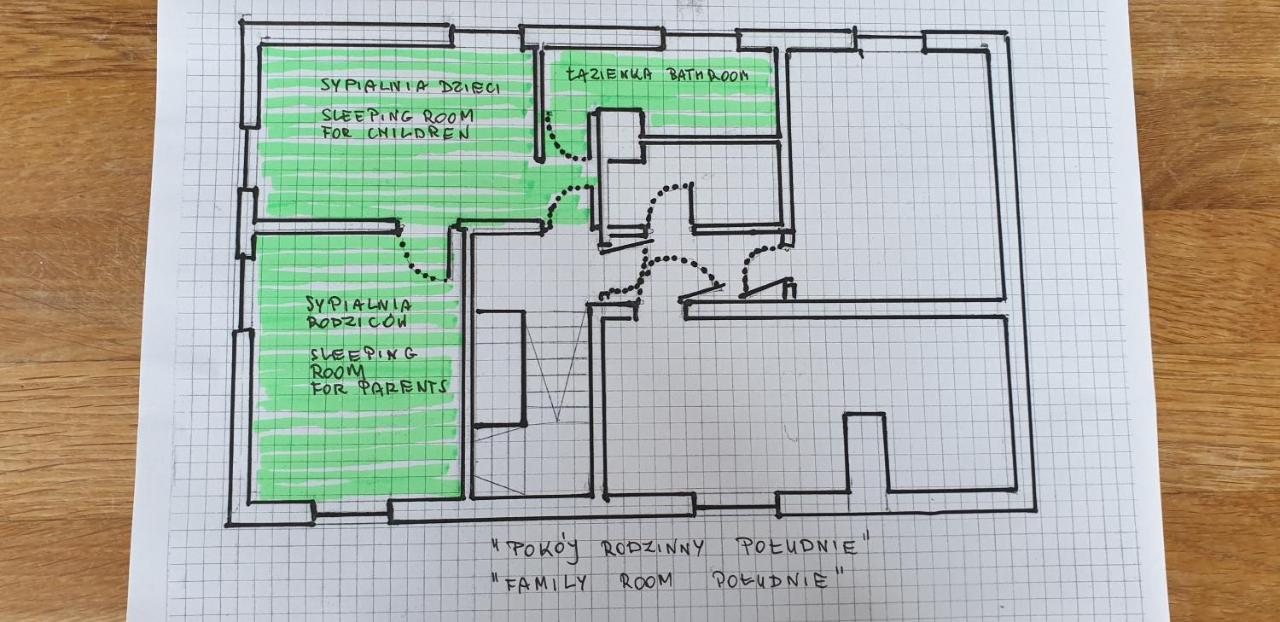 SYPIALNIA DZIECI
SLEEPING ROOM
FOR CHILDREN
ŁAZIENKA BATHROOM
SYPIALNIA
RODZICÓW
SLEEPING
ROOM
FOR PARENTS
"POKÓJ RODZINNY POŁUDNIE"
"FAMILY ROOM POŁUDNIE"